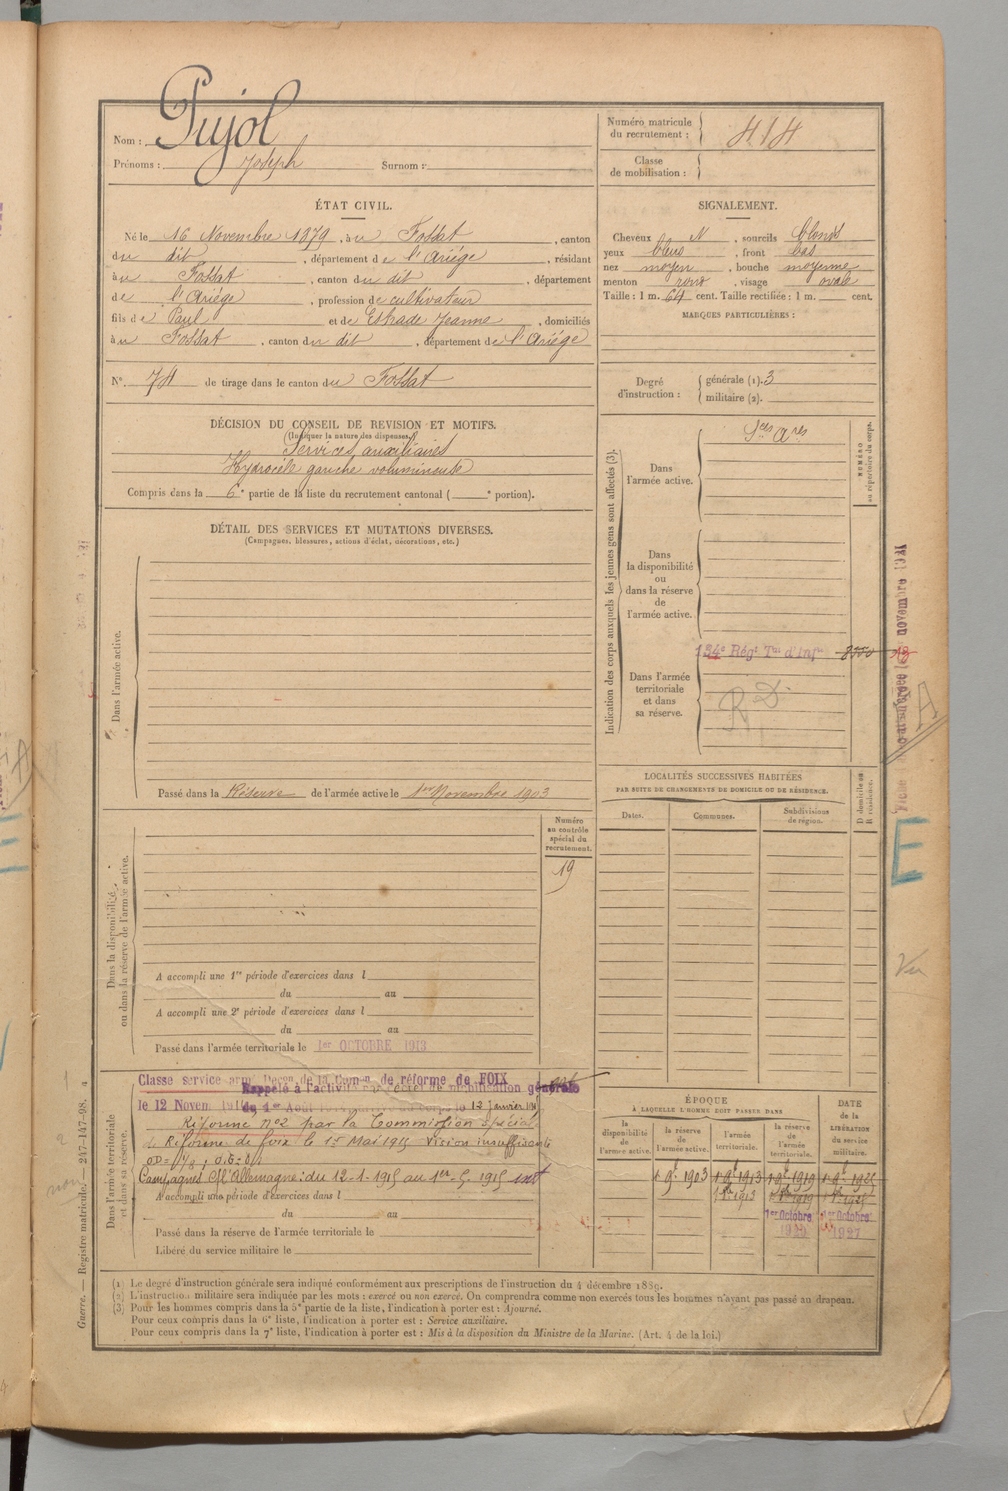 Nom : Pujol
Prénoms : Joseph Surnom :
Numéro matricule du recrutement : 414
Classe de mobilisation :
ÉTAT CIVIL.
Né le 16 Novembre 1879, à u Fossat, canton
du dit, département de l'Ariège, résidant
à u Fossat, canton du dit, département
de l'Ariège, profession de cultivateur
fils de Paul et de Estrade Jeanne, domiciliés
à u Fossat, canton du dit, département de l'Ariège
N° 74 de tirage dans le canton du Fossat
SIGNALEMENT.
Cheveux N, sourcils blonds
yeux bleus, front bas
nez moyen, bouche moyenne
menton rond, visage ovale
Taille : 1 m. 64 cent. Taille rectifiée : 1 m. cent.
MARQUES PARTICULIÈRES :
Degré d'instruction : générale (1). 3
militaire (2).
DÉCISION DU CONSEIL DE REVISION ET MOTIFS.
(Indiquer la nature des dispenses)
Services auxiliaires
Hydrocèle gauche volumineuse
Compris dans la 6e partie de la liste du recrutement cantonal ( e portion).
DÉTAIL DES SERVICES ET MUTATIONS DIVERSES.
(Campagnes, blessures, actions d'éclat, décorations, etc.)
Dans l'armée active.
Passé dans la Réserve de l'armée active le 1er Novembre 1903
Indication des corps auxquels les jeunes gens sont affectés (3).
NUMÉRO au répertoire du corps.
Dans l'armée active.
Sces Ares
Dans la disponibilité ou dans la réserve de l'armée active.
Dans l'armée territoriale et dans sa réserve.
134e Régt Tal d'Infie
R D
LOCALITÉS SUCCESSIVES HABITÉES
PAR SUITE DE CHANGEMENTS DE DOMICILE OU DE RÉSIDENCE.
Dates. Communes. Subdivisions de région. D domicile ou R résidence.
Dans la disponibilité ou dans la réserve de l'armée active.
Numéro au contrôle spécial du recrutement.
19
A accompli une 1re période d'exercices dans l
du au
A accompli une 2e période d'exercices dans l
du au
Passé dans l'armée territoriale le 1er OCTOBRE 1913
Dans l'armée territoriale et dans sa réserve.
Classe service armé Décon de la Comon de réforme de FOIX
Rappelé à l'activité par décret de mobilisation générale
le 12 Novem
du 1er Août 1914 au corps le 12 Janvier 1915
Réforme n°2 par la Commission spéciale
de Réforme de foix le 1er Mai 1915 Vision insuffisante
Campagnes Ct l'Allemagne : du 12-1-1915 au 1er-5-1915 int
A accompli une période d'exercices dans l
du au
Passé dans la réserve de l'armée territoriale le
Libéré du service militaire le
ÉPOQUE
À LAQUELLE L'HOMME DOIT PASSER DANS
la disponibilité de l'armée active. la réserve de l'armée active. l'armée territoriale. la réserve de l'armée territoriale. DATE de la LIBÉRATION du service militaire.
1 9e 1903 1 9e 1913 1 9e 1919 1 9e 1925
1 Xbre 1913
1er Octobre 1er Octobre
1927
(1) Le degré d'instruction générale sera indiqué conformément aux prescriptions de l'instruction du 4 décembre 1889.
(2) L'instruction militaire sera indiquée par les mots : exercé ou non exercé. On comprendra comme non exercés tous les hommes n'ayant pas passé au drapeau.
(3) Pour les hommes compris dans la 5e partie de la liste, l'indication à porter est : Ajourné.
Pour ceux compris dans la 6e liste, l'indication à porter est : Service auxiliaire.
Pour ceux compris dans la 7e liste, l'indication à porter est : Mis à la disposition du Ministre de la Marine. (Art. 4 de la loi.)
Guerre. — Registre matricule. — 247-147-98. 4
novembre 1921
A
E
Vu